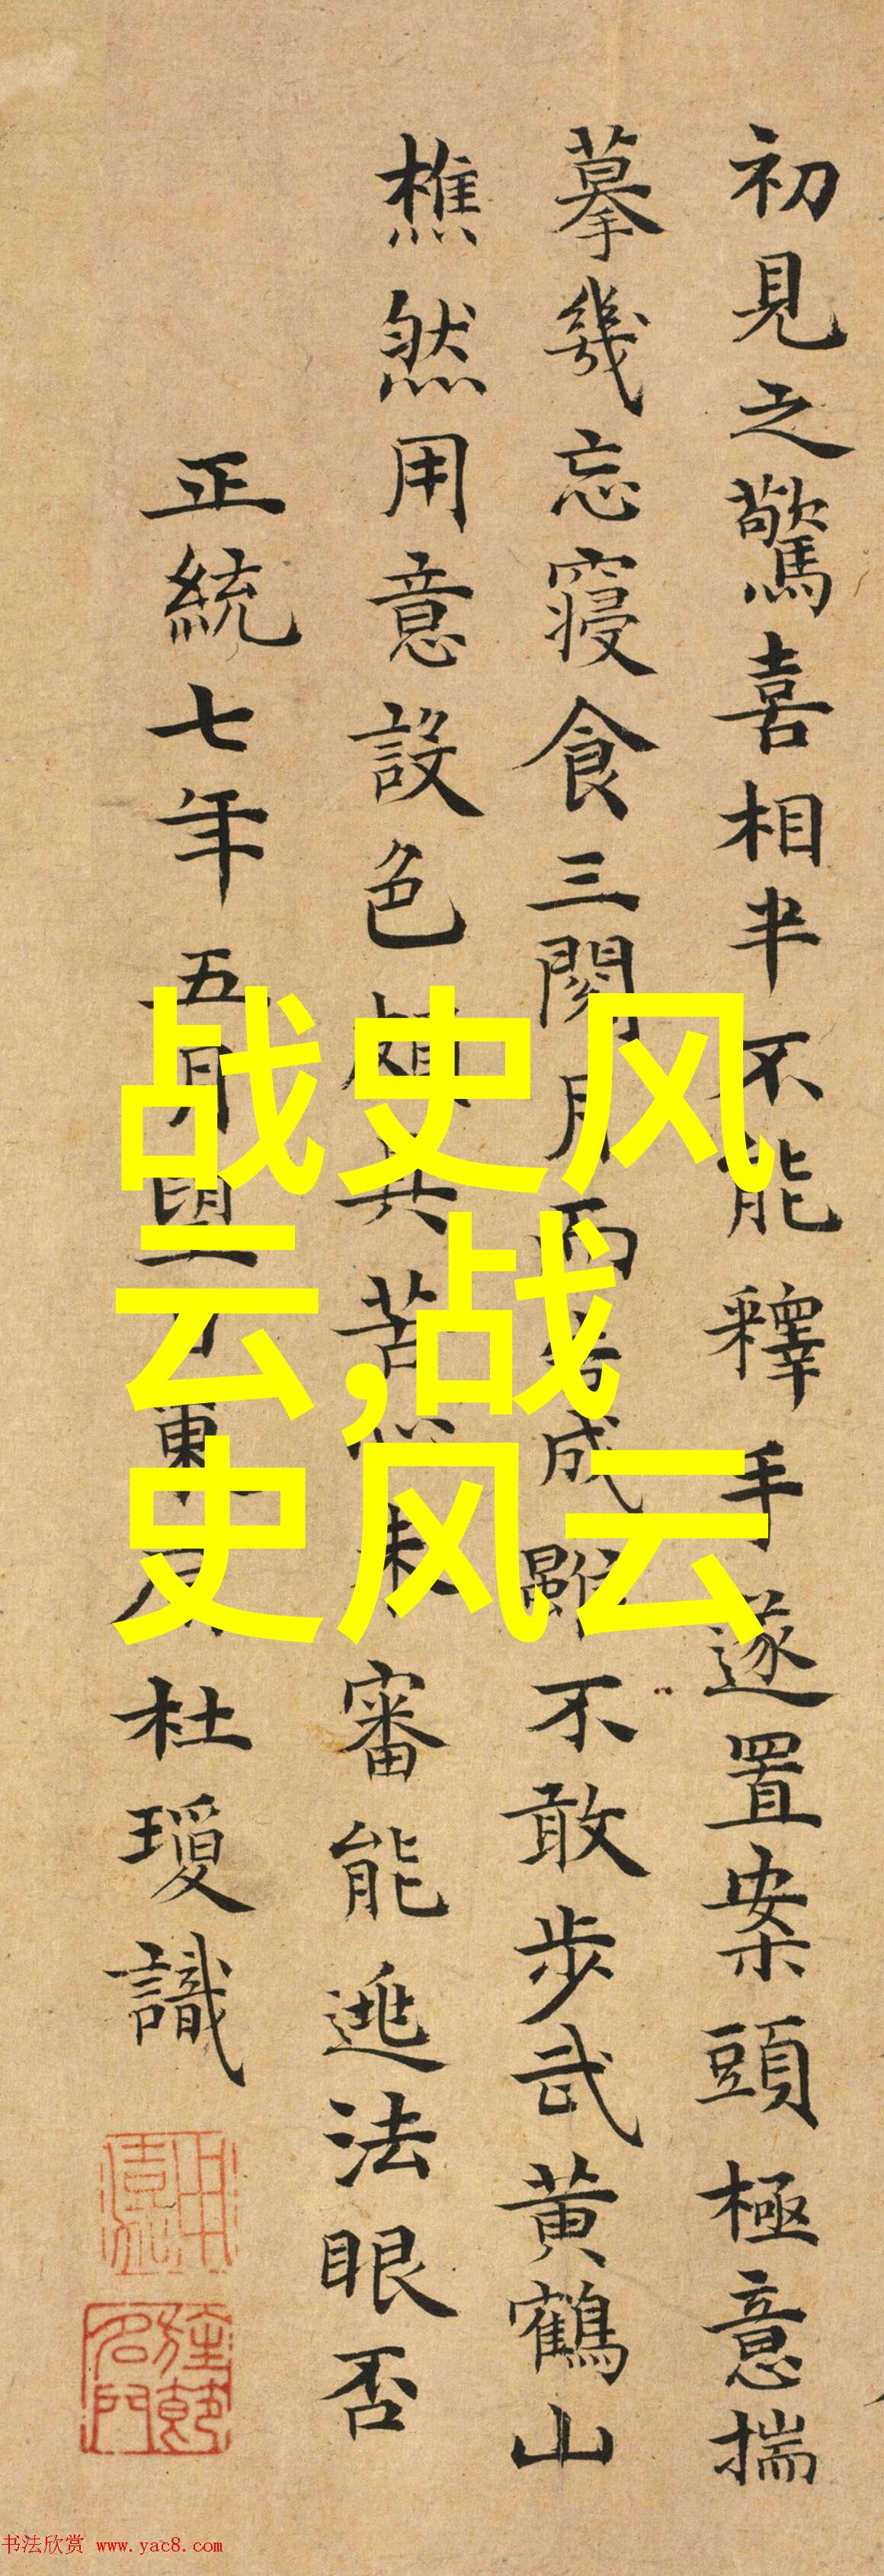 初見之驚喜相半不能釋手遂置案頭極意揣
摹幾忘寢食三閱月而成雖不敢步武黃鶴山
樵然用意設色頗具苦心未審能逃法眼否
正統七年五月望日東原杜瓊識
战史风
云,战
史风云
书法欣赏 www.yac8.com